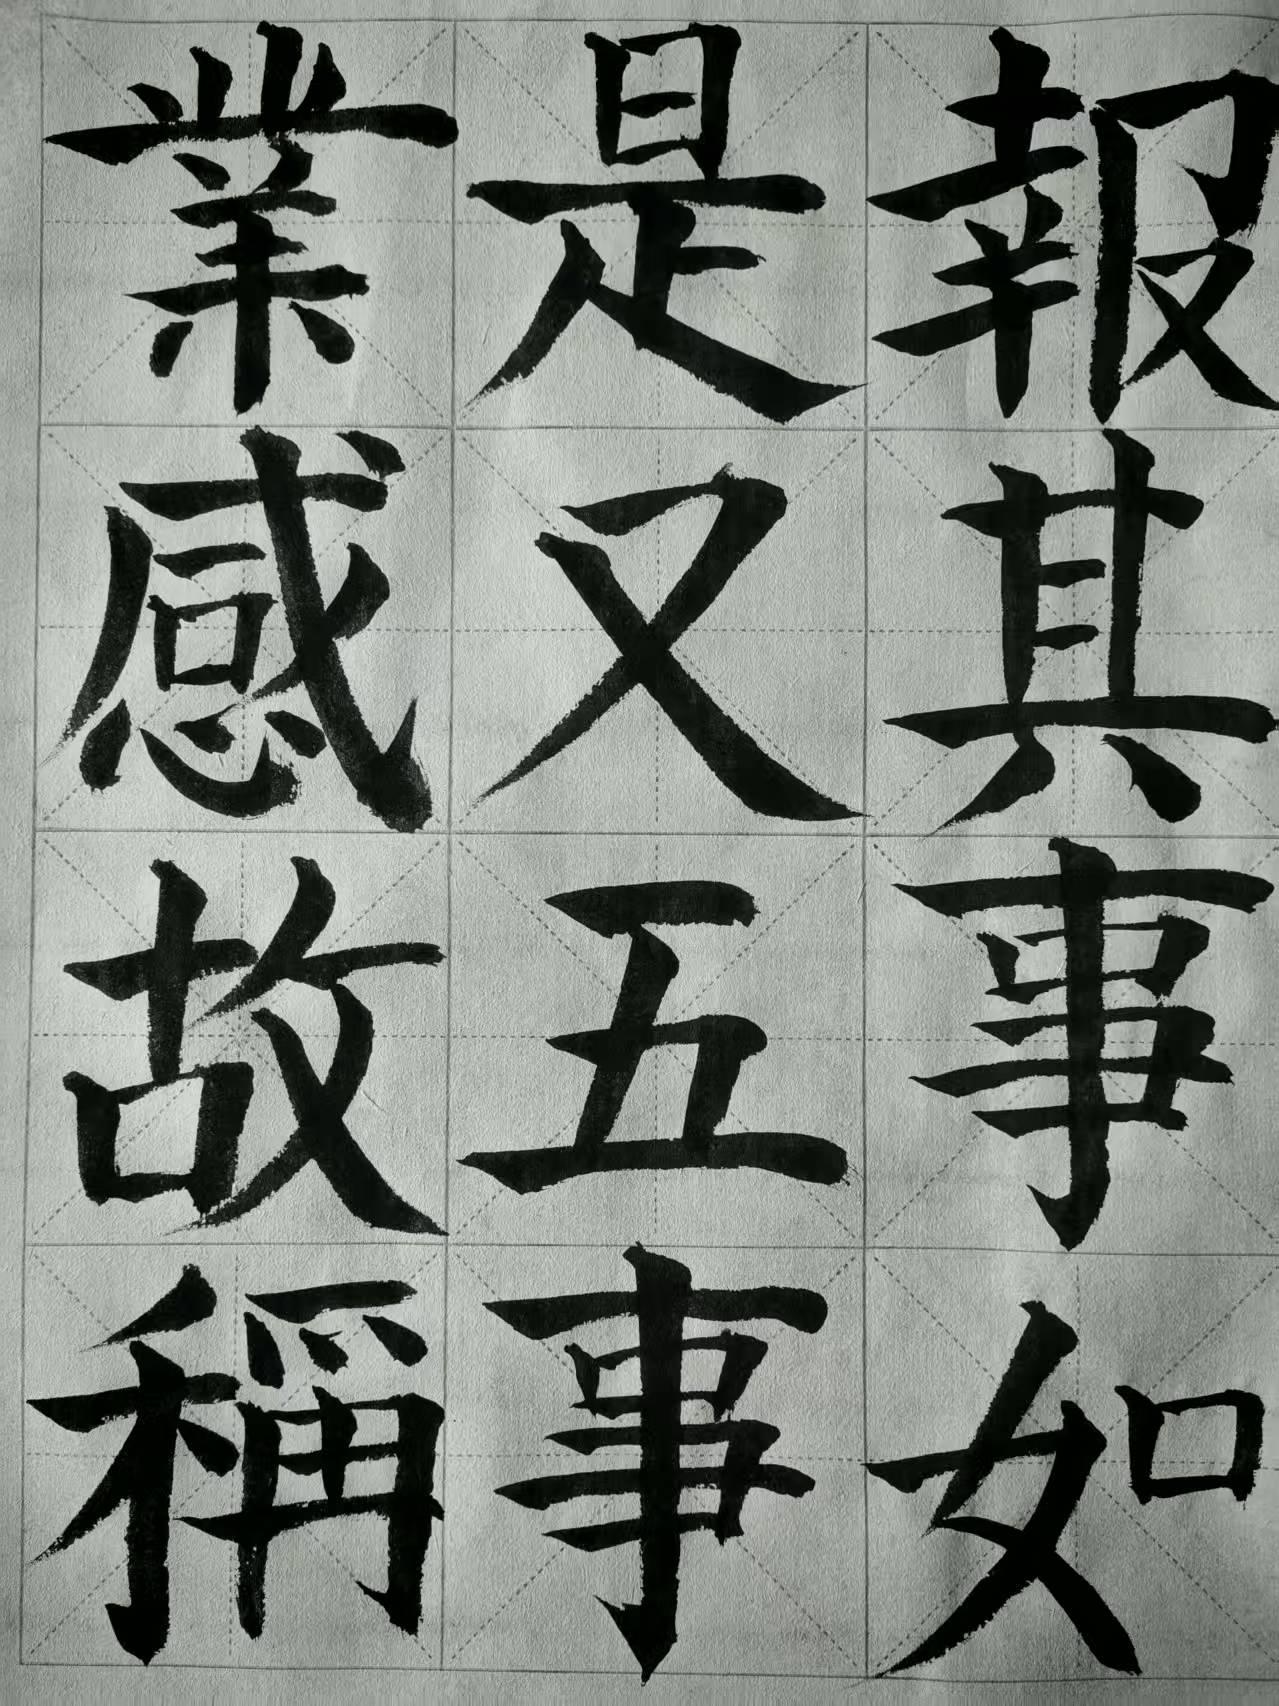 報其事如
是又五事
業感故稱